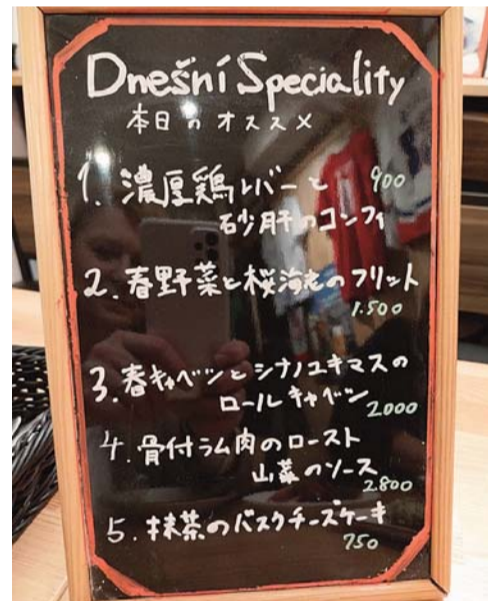 Dnešní Speciality
本日のオススメ
1. 濃厚鶏レバーと 900
砂肝のコンフィ
2. 春野菜と桜海老のフリット
1.500
3. 春キャベツとシナノユキマスの
ロールキャベツ 2000
4. 骨付ラム肉のロースト
山菜のソース
2.800
5. 抹茶のバスクチーズケーキ
750